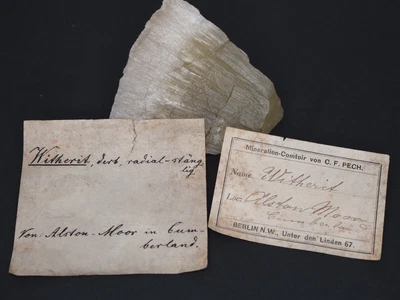 Witherit, derb, radial-stäng
lig.
Von Alston-Moor in Cum-
berland.
Mineralien-Comtoir von C. F. PECH.
Name: Witherit
Loc: Alston Moor
Cumberland
BERLIN N.W., Unter den Linden 67.